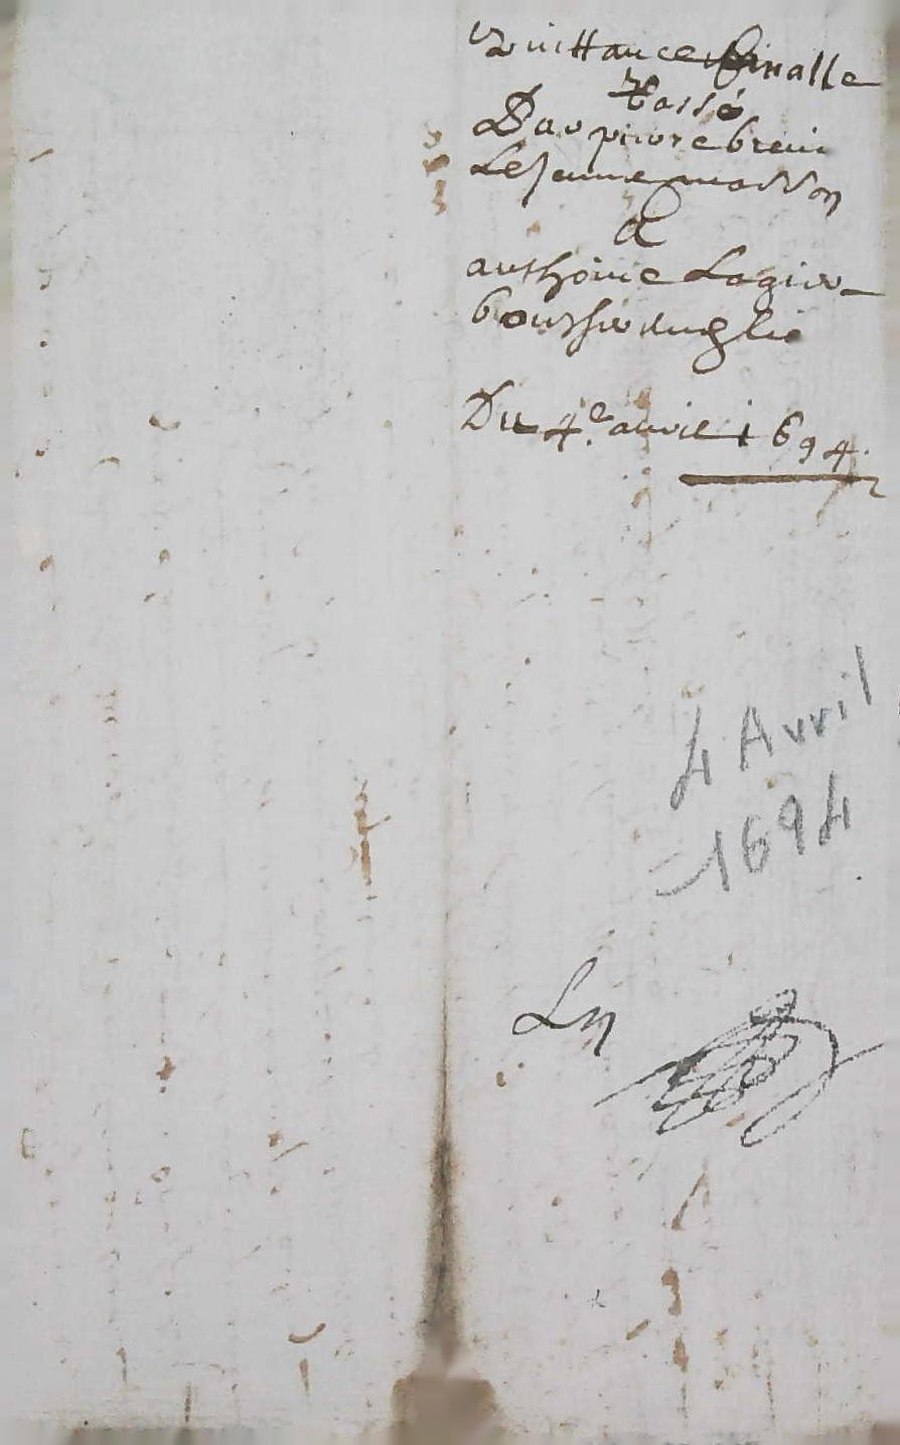 Quittance finalle
Passé
Par pierre breui
Le Jeune masson
A
anthoine Lagier
boursier
Du 4e. auril 1694.
4 Avril
1694
Ln